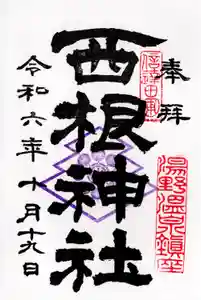 奉拝
信達一円
西根神社
湯野温泉鎮座
令和六年十月十九日